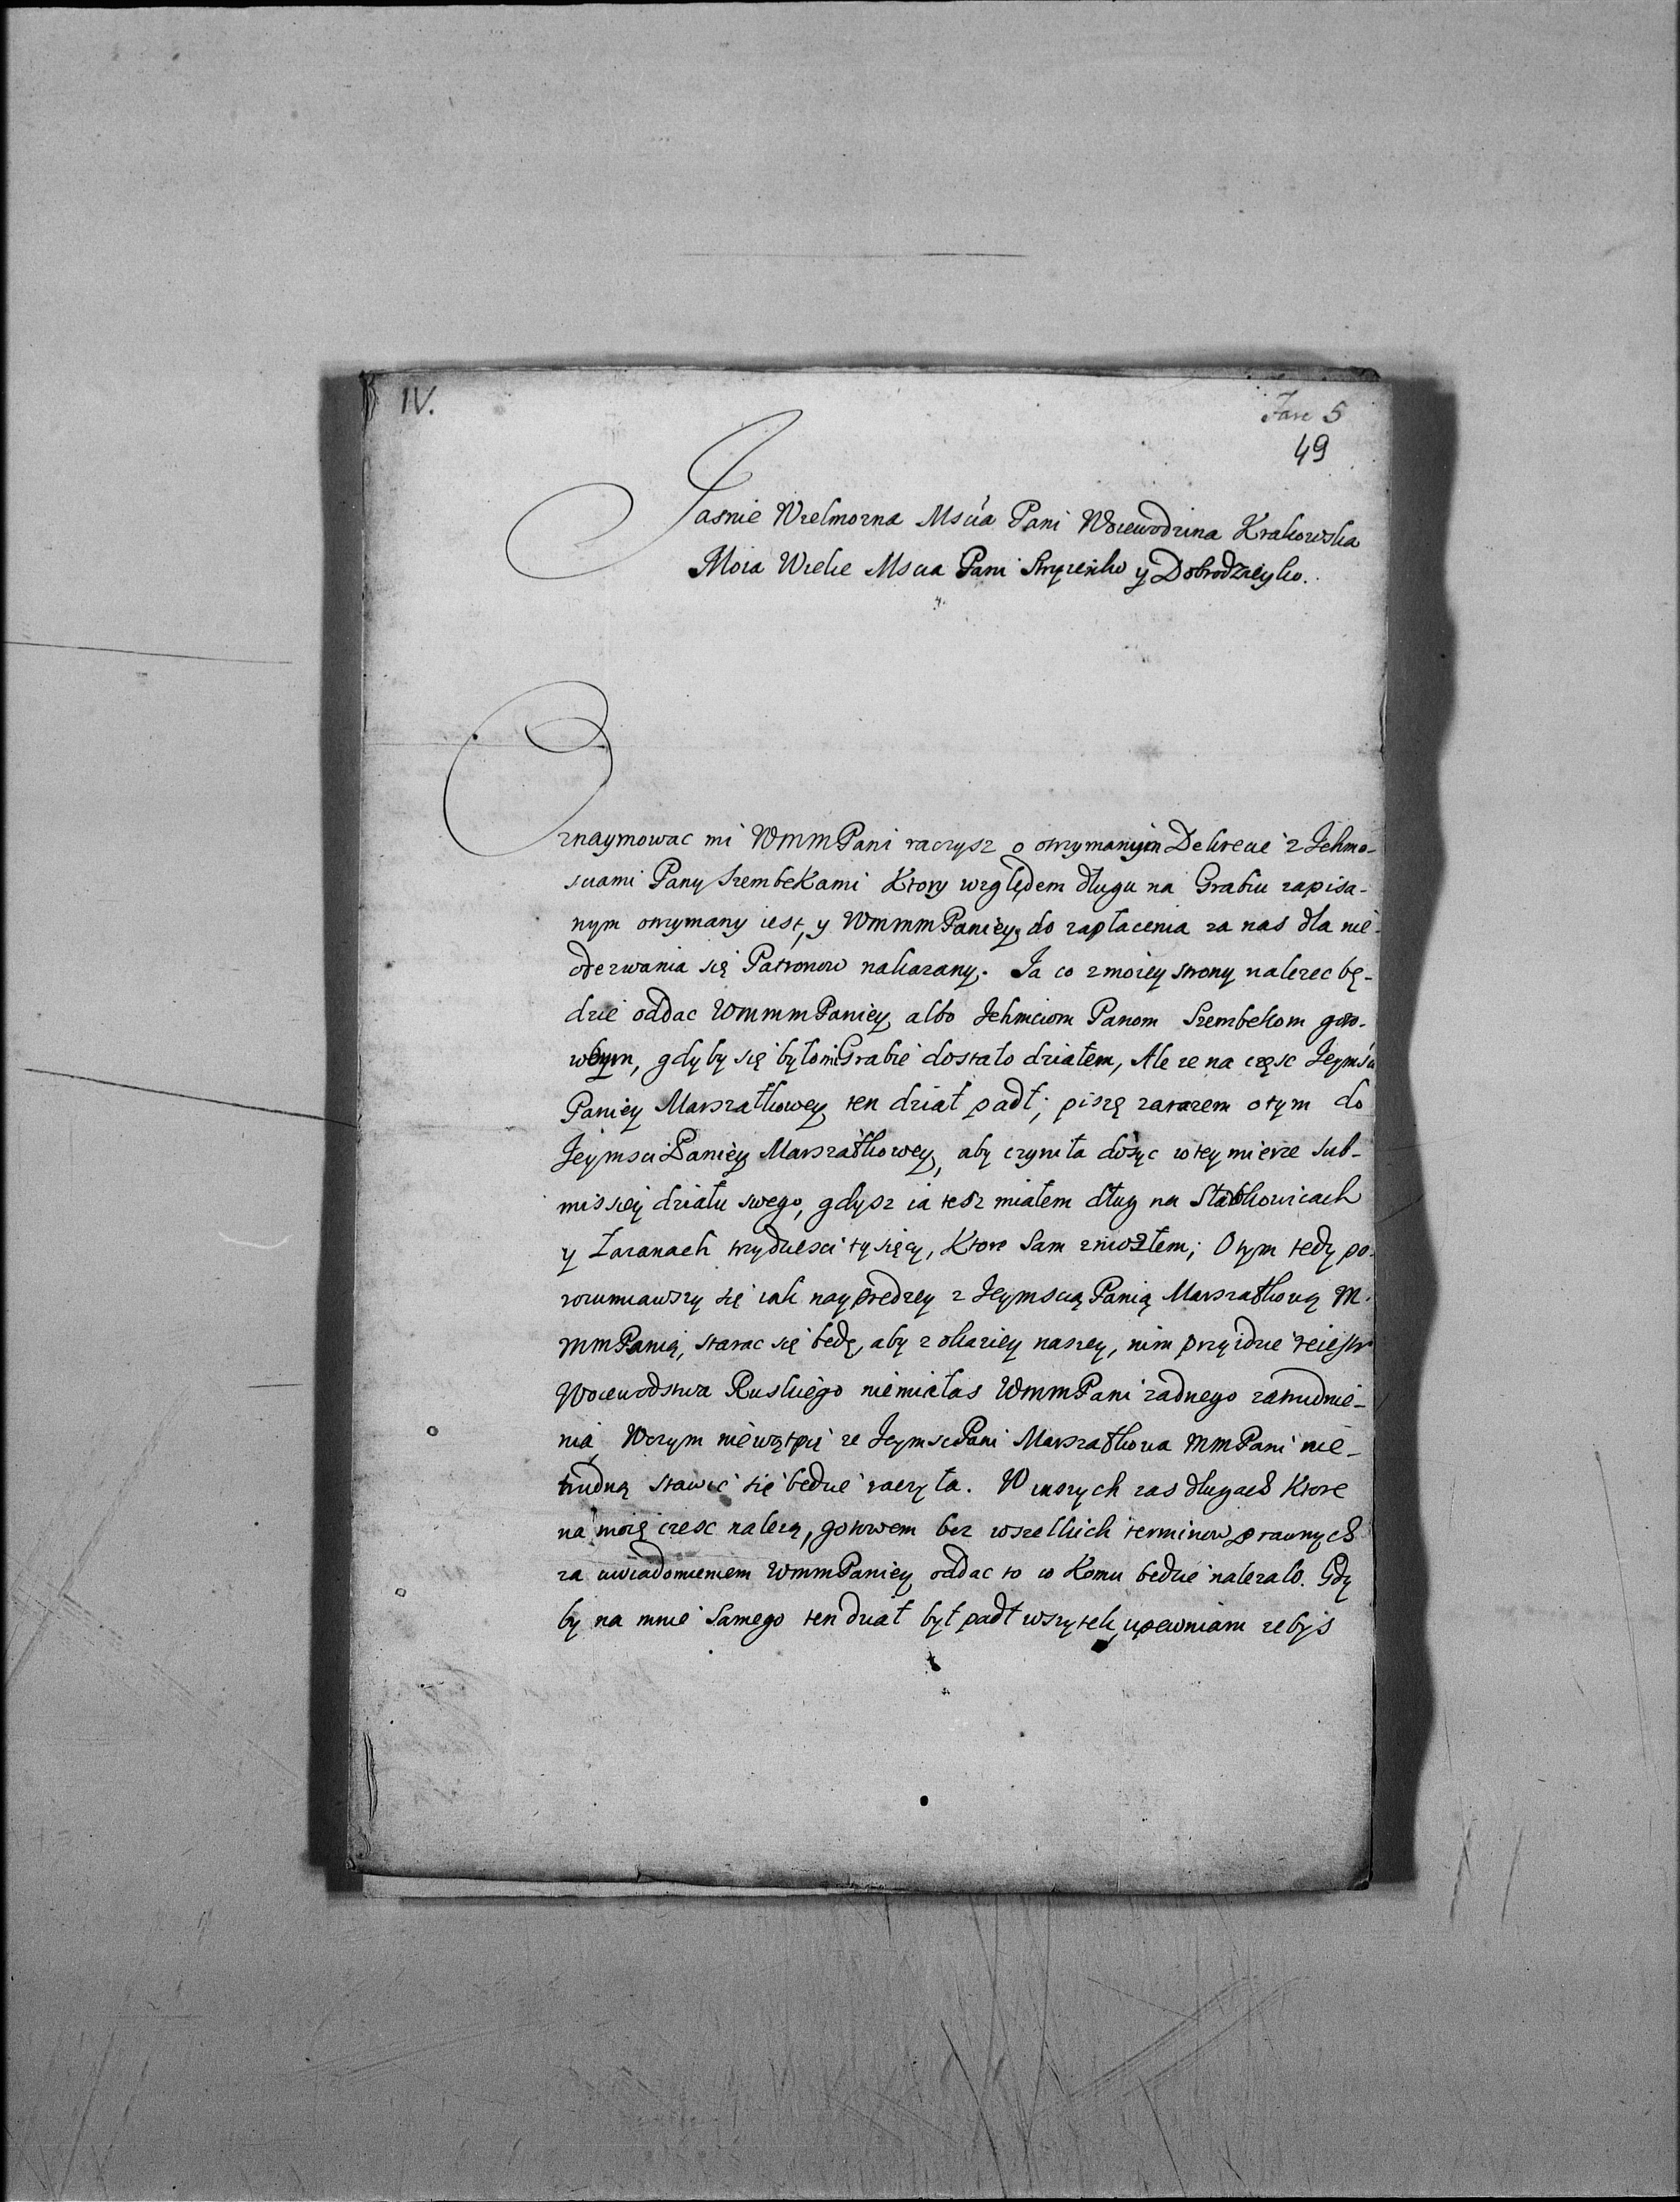 IV.
Fasc 5
49
Jasnie Wielmozna Mscia Pani Woiewodzina Krakowska
Moia Wielce Mscia Pani Stryienko y Dobrodzieyko.
Oznaymowac mi WmmPani raczysz o otrzymanym Dekrecie z Jehmo-
sciami Pany Szembekami Ktory względem długu na Grabiu zapisa-
nym otrzymany iest, y WmmmPaniey do zapłacenia za nas dla nie-
odezwania się Patronow nakazany. Ja co zmoiey strony nalezec bę-
dzie oddac WmmmPaniey albo Jehmciom Panom Szembekom goto-
wbym, gdyby się było mi Grabie dostało działem, Ale ze na częsc Jeymsci
Paniey Marszałkowey ten dział padł; piszę zarazem otym do
Jeymsci Paniey Marszałkowey, aby czyniła dosyc wtey mierze sub-
missiey działu swego, gdysz ia tesz miałem dług na
y Zaranach trzydziesci tysięcy, Ktore sam zniosłem; O tym tedy po-
rozumiawszy się iak nayprędzey z Jeymscią Panią Marszałkową M.
mmPanią, starac się bedę, aby z okaziey naszey, nim przyidzie reiestr
Woiewodstwa Ruskiego niemiałas WmmPani zadnego zatrudnie-
nia, Wczym niewątpię ze Jeymsc Pani Marszałkowa MmPani nie-
trudną stawic się bedzie raczyła. W inszych zas długach Ktore
na moię czesc nalezą, gotowem bez wszelkich terminow prawnych
za uwiadomieniem WmmPaniey oddac to co Komu bedzie nalezalo. Gdy
by na mnie samego ten dział był padł wszytek, upewniam zebys